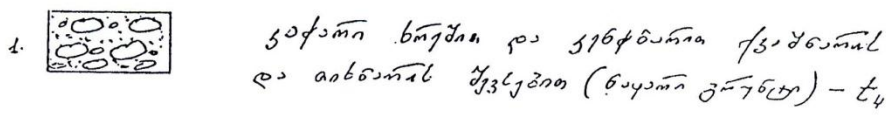 1. კაჭარი ხრეშით და კენჭნარით ქვიშნარის
და თიხნარის შევსებით (ნაყარი გრუნტი) – t₄